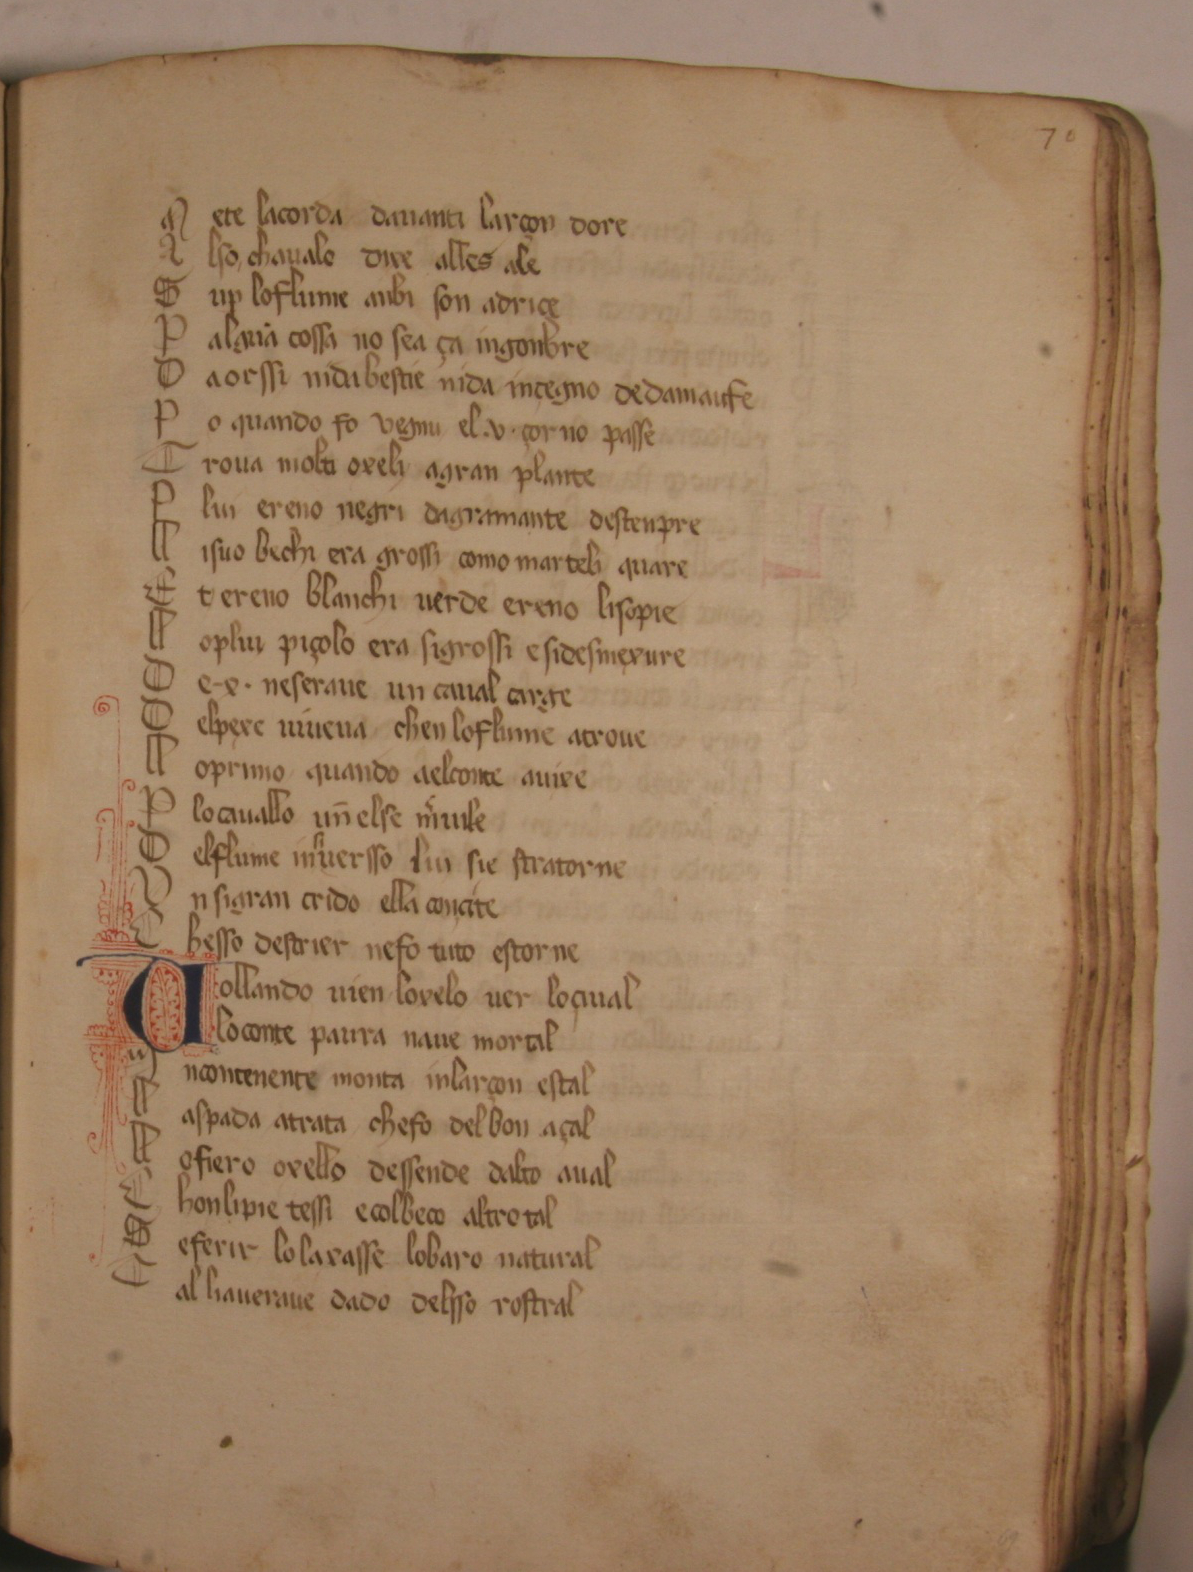 70
M ete lacorda dauanti larçon dore
A lso chaualo dixe alles ale
S up loflume aubi son adriçe
P alguã cossa no sea ça ingonbre
D aorssi nidubestie nida incegno dedamaufe
P o quando fo vegnu el .v. çorno passe
T roua molti oxeli agran plante
P lui ereno negri dagramante destenpre
L isuo bechi era grossi como marteli quare
E t ereno blanchi uerde ereno lisopie
L oplui piçolo era sigrossi esidesmexure
D e .x. neseraue un caual carge
D elpexe uiueua chen loflume atroue
L oprimo quando aelconte auixe
P locauallo else
D elflume inuersso lui sie stratorne
V n sigran crido ella
C hesso destrier nefo tuto estorne
V ollando uien loxelo uer loçiual
loconte paura naue mortal
I ncontenente monta inlarçon estal
L aspada atrata chefo delbon açal
L ofiero oxello dessende dalto aual
C honlipie tessi ecolbeco altrotal
S eferir lolaxasse lobaro natural
T al haueraue dado delsso rostral